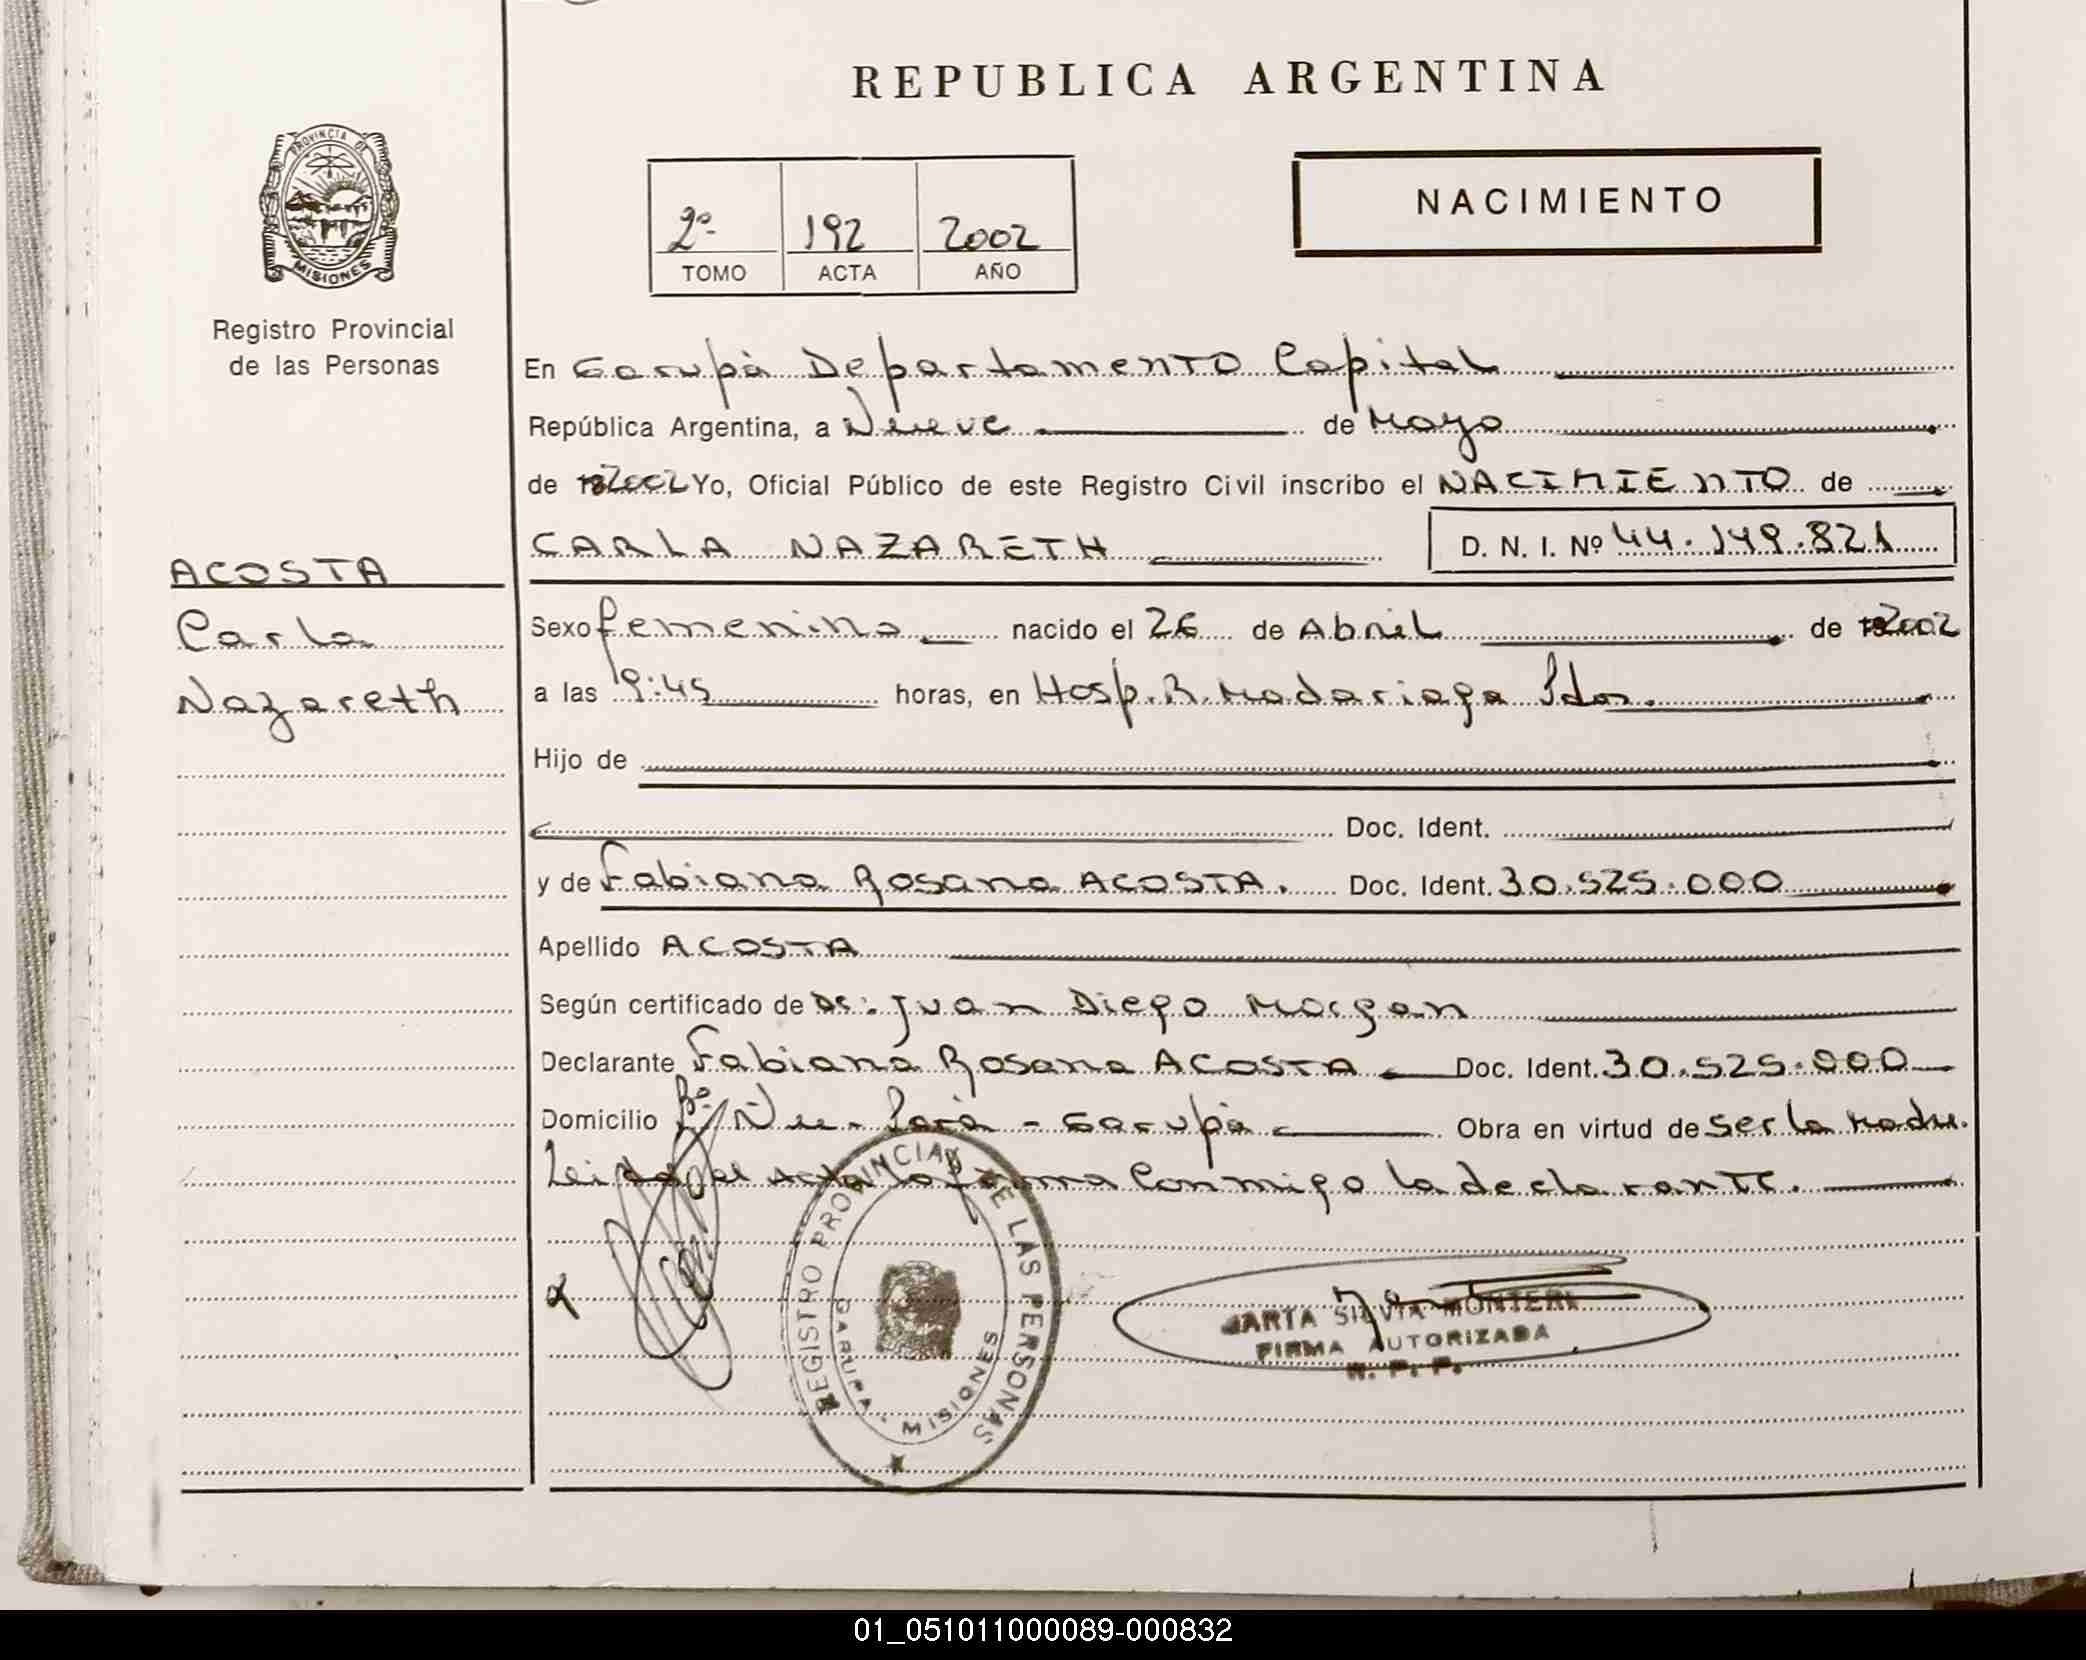 REPUBLICA ARGENTINA
PROVINCIA DE
MISIONES
Registro Provincial
de las Personas
2º 192 2002
TOMO ACTA AÑO
NACIMIENTO
En Garupá Departamento Capital
República Argentina, a Nueve de Mayo
de 2002 Yo, Oficial Público de este Registro Civil inscribo el NACIMIENTO de
CARLA NAZARETH D. N. I. Nº 44.149.821
ACOSTA
Carla
Nazareth
Sexo femenino nacido el 26 de Abril de 2002
a las 9:45 horas, en Hosp. R. Madariaga Pdas.
Hijo de
Doc. Ident.
y de Fabiana Rosana ACOSTA. Doc. Ident. 30.525.000
Apellido ACOSTA
Según certificado de Dr: Juan Diego Morgan
Declarante Fabiana Rosana ACOSTA Doc. Ident. 30.525.000
Domicilio Bº Ñu - Porá - Garupá Obra en virtud de ser la Madre.
Leida el Acta la firma Conmigo la declarante.
REGISTRO PROVINCIAL DE LAS PERSONAS
GARUPA - MISIONES
MARIA SILVIA
FIRMA AUTORIZADA
R. P. P.
01_051011000089-000832